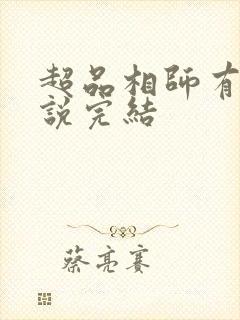 超品相師有
說完結
蔡亮賽